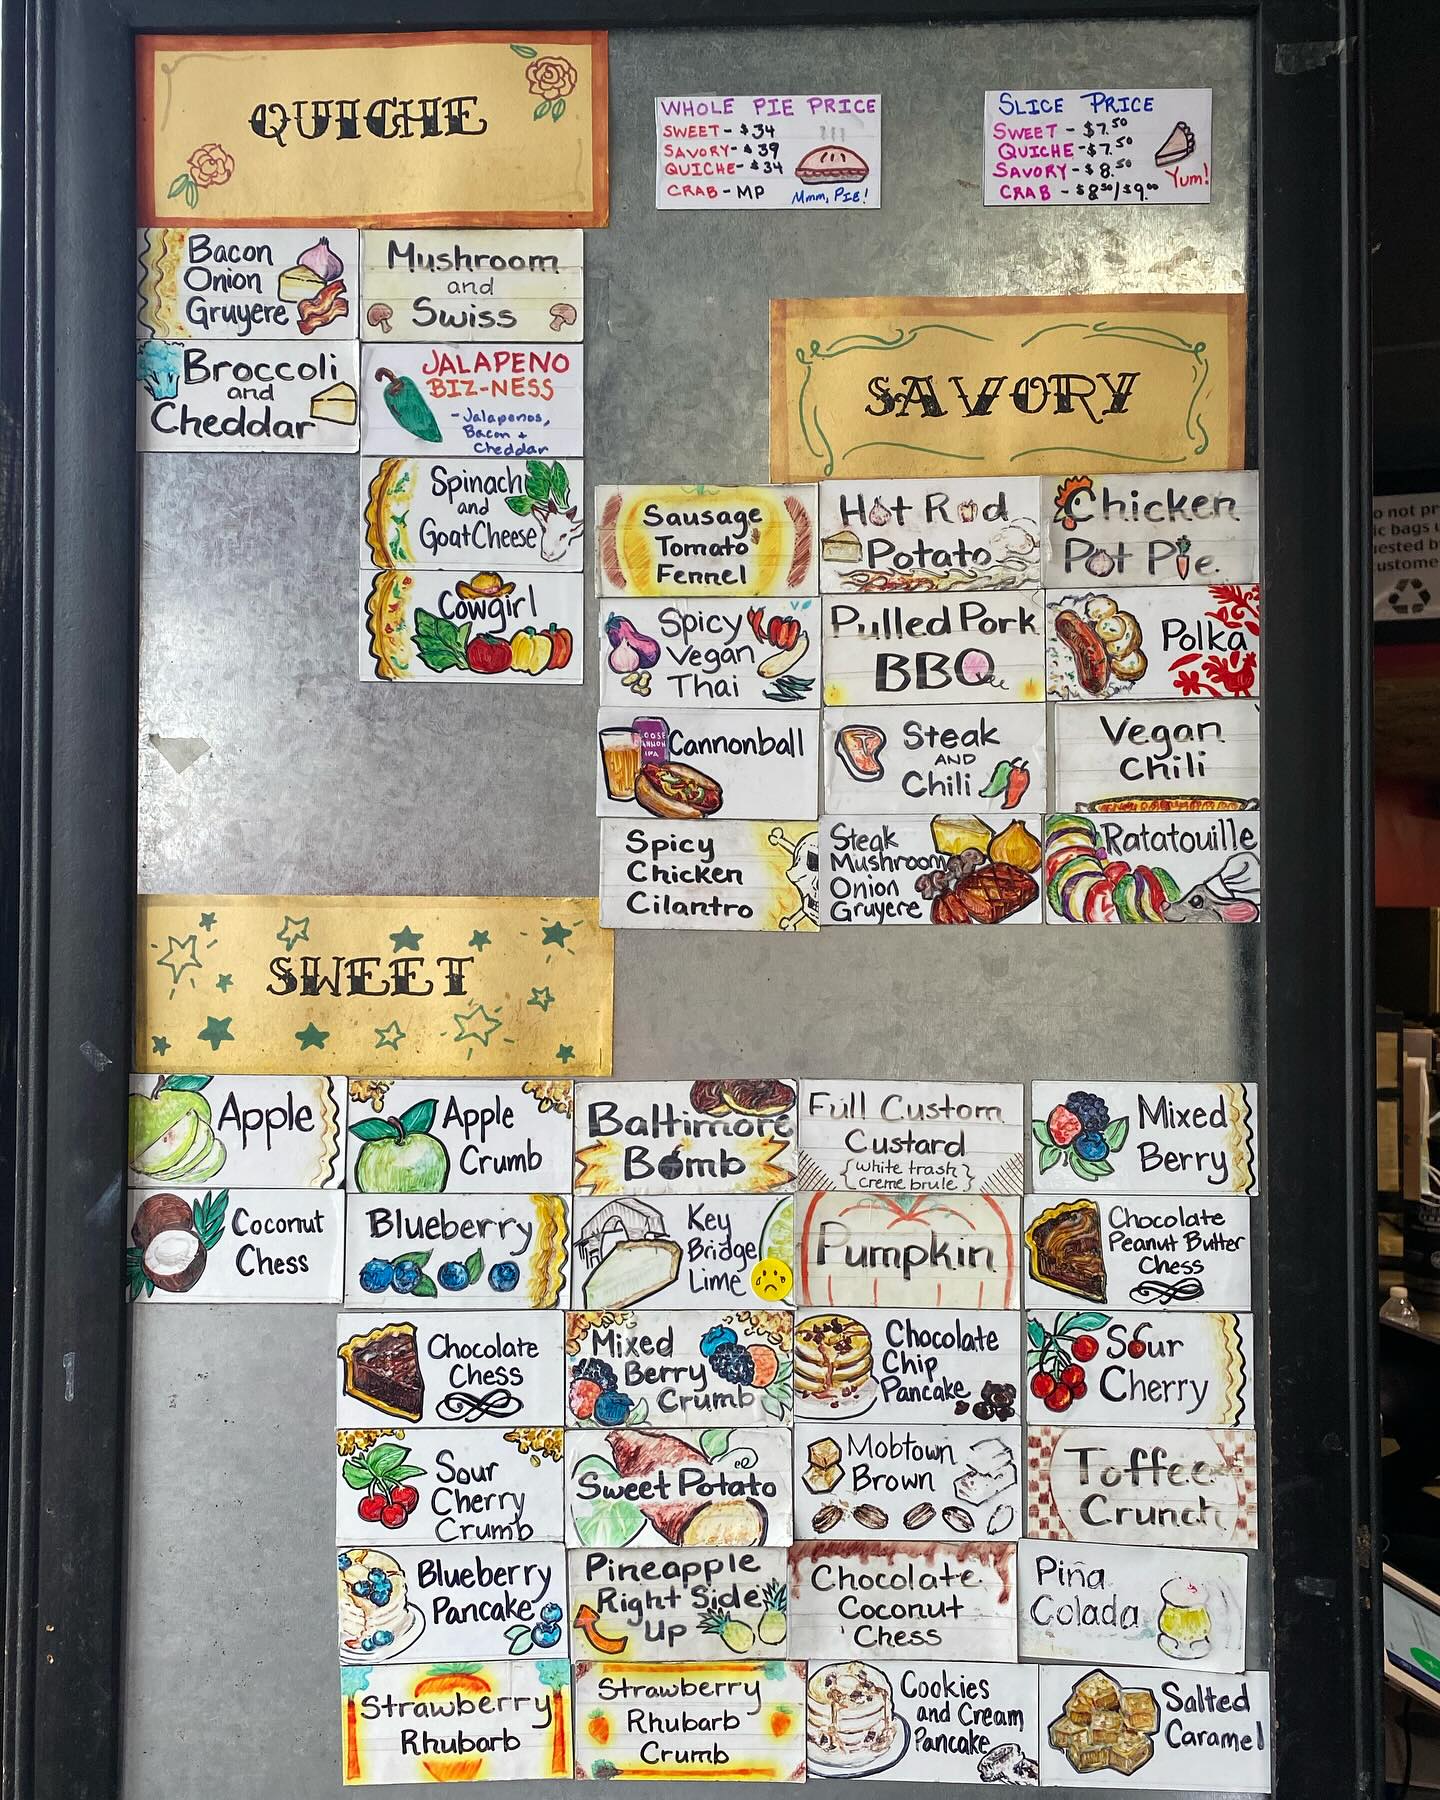 QUICHE
WHOLE PIE PRICE
SWEET - $34
SAVORY - $39
QUICHE - $34
CRAB - MP
Mmm, PIE!
SLICE PRICE
SWEET - $7.50
QUICHE - $7.50
SAVORY - $8.50
CRAB - $8.50/$9.00
Yum!
Bacon
Onion
Gruyere
Mushroom
and
Swiss
Broccoli
and
Cheddar
JALAPENO
BIZ-NESS
- Jalapenos,
Bacon +
Cheddar
Spinach
and
Goat Cheese
Cowgirl
SAVORY
Sausage
Tomato
Fennel
Hot Rod
Potato
Chicken
Pot Pie
Spicy
Vegan
Thai
Pulled Pork
BBQ
Polka
Cannonball
Steak
AND
Chili
Vegan
Chili
Spicy
Chicken
Cilantro
Steak
Mushroom
Onion
Gruyere
Ratatouille
SWEET
Apple
Apple
Crumb
Baltimore
Bomb
Full Custom
Custard
{white trash}
{creme brule}
Mixed
Berry
Coconut
Chess
Blueberry
Key
Bridge
Lime
Pumpkin
Chocolate
Peanut Butter
Chess
Chocolate
Chess
Mixed
Berry
Crumb
Chocolate
Chip
Pancake
Sour
Cherry
Sour
Cherry
Crumb
Sweet Potato
Mobtown
Brown
Toffee
Crunch
Blueberry
Pancake
Pineapple
Right Side
Up
Chocolate
Coconut
Chess
Piña
Colada
Strawberry
Rhubarb
Strawberry
Rhubarb
Crumb
Cookies
and Cream
Pancake
Salted
Caramel